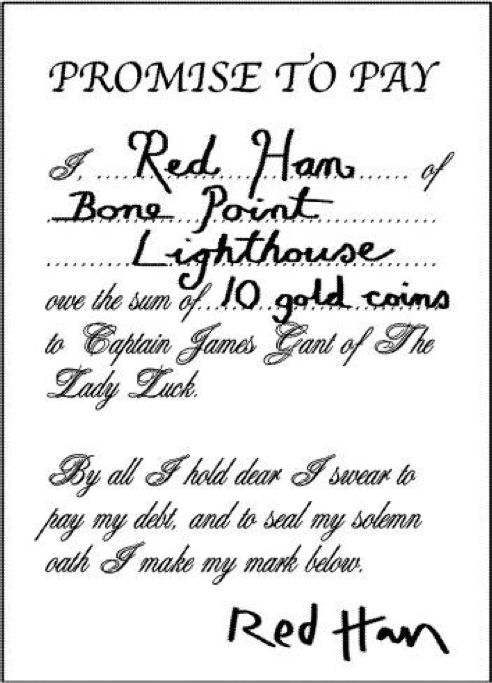 PROMISE TO PAY
I, ....Red Han...... of
Bone Point............
.........Lighthouse.....
owe the sum of...10 gold coins
to Captain James Gant of The
Lady Luck.
By all I hold dear I swear to
pay my debt, and to seal my solemn
oath I make my mark below.
Red Han